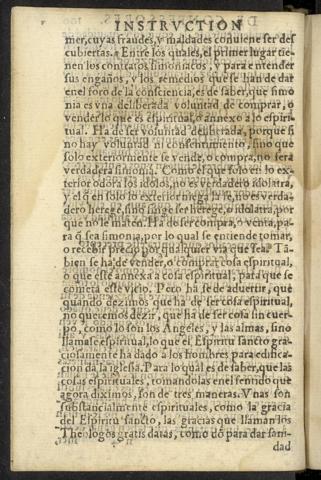 INSTRVCTION
mer, cuyas fraudes, y maldades conuiene ser des
cubiertas. Entre los quales, el primer lugar tie-
nen los contratos simoniacos, y para entender
sus engaños, y los remedios que se han de dar
en el foro de la consciencia, es de saber, que simo
nia es vna deliberada voluntad de comprar, o
vender lo que es espiritual, o annexo a lo espiri-
tual. Ha de ser voluntad deliberada, porque si
no hay voluntad ni consentimiento, sino que
solo exteriormente se vende, o compra, no sera
verdadera simonia. Como el que solo en lo ex-
terior adora los idolos, no es verdadero idolatra,
y el q̃ en solo lo exterior niega la fe, no es verda-
dero herege, sino finge ser herege, o idolatra, por
que no le maten. Ha de ser compra, o venta, pa-
ra q̃ sea simonia, por lo qual se entiende tomar,
o recebir precio por qualquier via que sea. Tã-
bien se ha de vender, o comprar cosa espiritual,
o que esté annexa a cosa espiritual, para que se
cometa este vicio. Pero ha se de aduertir, que
quando dezimos que ha de ser cosa espiritual,
no queremos dezir, que ha de ser cosa sin cuer-
po, como lo son los Angeles, y las almas, sino
llamase espiritual, lo que el Espiritu sancto gra-
ciosamente ha dado a los hombres para edifica-
cion de la iglesia. Para lo qual es de saber, que las
cosas espirituales, tomandolas en el sentido que
agora diximos, son de tres maneras. Vnas son
substancialmente espirituales, como la gracia
del Espiritu sancto, las gracias que llaman los
Theologos gratis datas, como dõ para dar sani-
dad